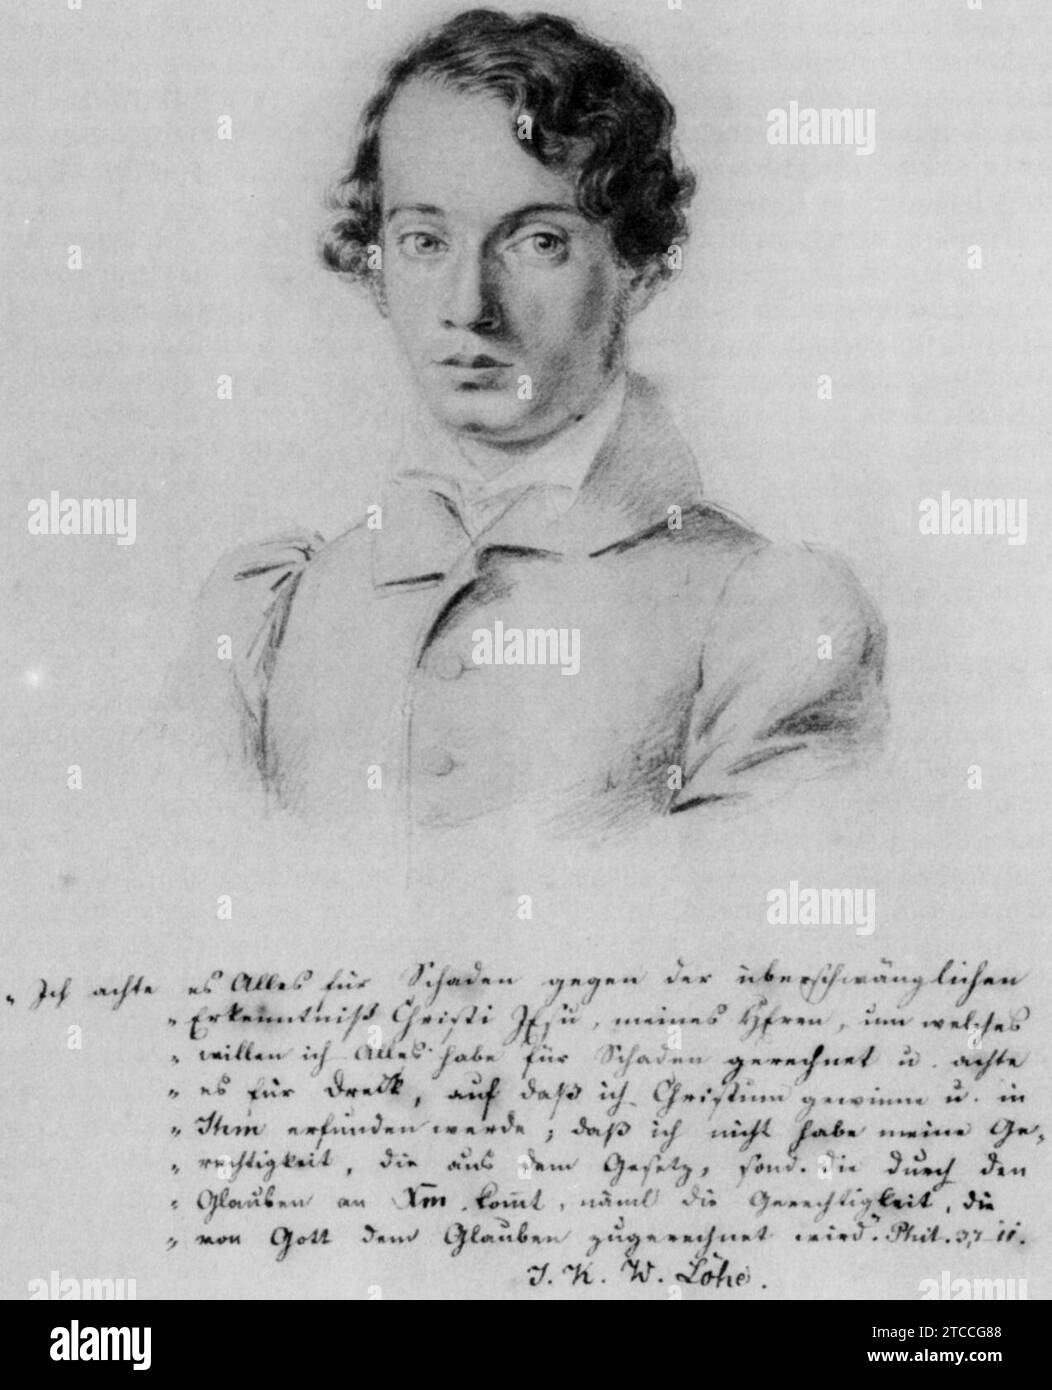 „Ich achte es Alles für Schaden gegen der überschwänglichen
„Erkenntniß Christi JEsu, meines HErrn, um welches
„willen ich Alles habe für Schaden gerechnet u. achte
„es für Dreck, auf daß ich Christum gewinne u. in
„Ihm erfunden werde; daß ich nicht habe meine Ge-
„rechtigkeit, die aus dem Gesetz, sond. die durch den
„Glauben an Xm. kom̄t, näml die Gerechtigkeit, die
„von Gott dem Glauben zugerechnet wird." Phil. 3,7-11.
J. K. W. Löhe.
alamy
a
alamy
Image ID: 2TCCG88
www.alamy.com